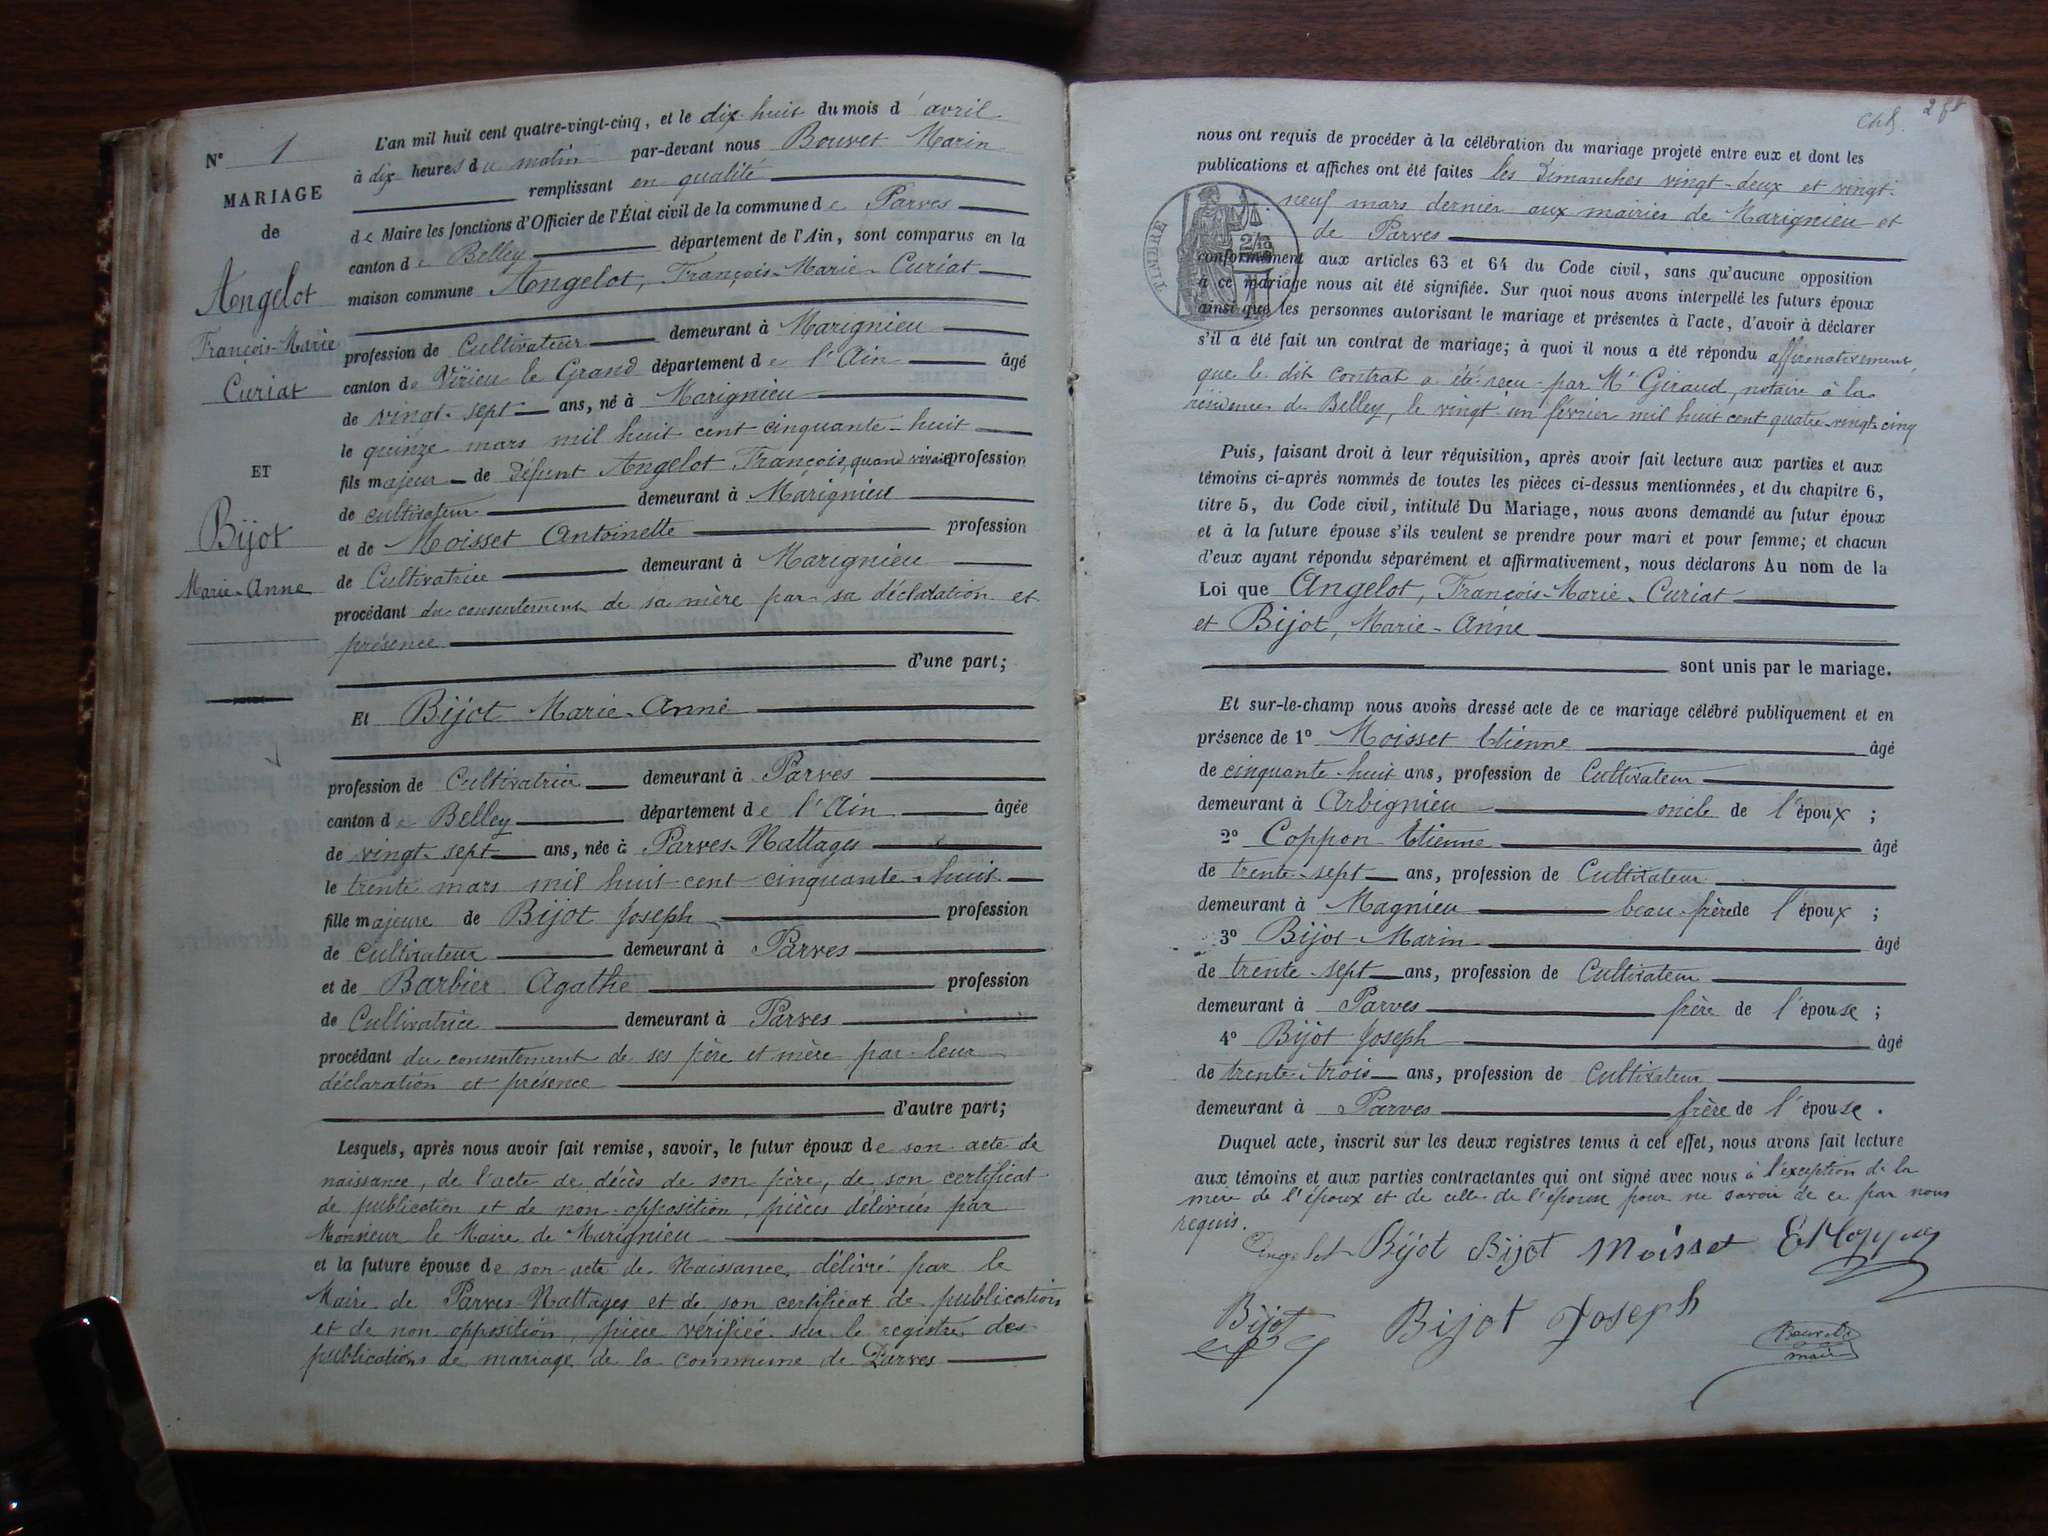 N° 1
MARIAGE
de
Angelot
François-Marie
Curiat
ET
Bijot
Marie-Anne
L'an mil huit cent quatre-vingt-cinq, et le dix-huit du mois d'avril
à dix heures du matin par-devant nous Bouvet Marin
remplissant en qualité
de Maire les fonctions d'Officier de l'État civil de la commune de Parves
canton de Belley département de l'Ain, sont comparus en la
maison commune Angelot, François-Marie-Curiat
profession de Cultivateur demeurant à Marignieu
canton de Virieu le Grand département de l'Ain âgé
de vingt-sept ans, né à Marignieu
le quinze mars mil huit cent cinquante-huit
fils majeur de Défunt Angelot François, quand vivait profession
de cultivateur demeurant à Marignieu
et de Moisset Antoinette profession
de Cultivatrice demeurant à Marignieu
procédant du consentement de sa mère par sa déclaration et
présence
d'une part;
Et Bijot Marie-Anne
profession de Cultivatrice demeurant à Parves
canton de Belley département de l'Ain âgée
de vingt-sept ans, née à Parves-Nattages
le trente mars mil huit cent cinquante-huit
fille majeure de Bijot Joseph profession
de cultivateur demeurant à Parves
et de Barbier Agathe profession
de Cultivatrice demeurant à Parves
procédant du consentement de ses père et mère par leur
déclaration et présence
d'autre part;
Lesquels, après nous avoir fait remise, savoir, le futur époux de son acte de
naissance, de l'acte de décès de son père, de son certificat
de publication et de non-opposition, pièces délivrées par
Monsieur le Maire de Marignieu
et la future épouse de son acte de Naissance, délivré par le
Maire de Parves-Nattages et de son certificat de publication
et de non opposition, pièce vérifiée sur le registre des
publications de mariage de la commune de Parves
nous ont requis de procéder à la célébration du mariage projeté entre eux et dont les
publications et affiches ont été faites les Dimanches vingt-deux et vingt-
neuf mars dernier aux mairies de Marignieu et
de Parves
conformément aux articles 63 et 64 du Code civil, sans qu'aucune opposition
à ce mariage nous ait été signifiée. Sur quoi nous avons interpellé les futurs époux
ainsi que les personnes autorisant le mariage et présentes à l'acte, d'avoir à déclarer
s'il a été fait un contrat de mariage; à quoi il nous a été répondu affirmativement,
que le dit contrat a été reçu par Me Giraud, notaire à la
résidence de Belley, le vingt un février mil huit cent quatre-vingt-cinq
Puis, faisant droit à leur réquisition, après avoir fait lecture aux parties et aux
témoins ci-après nommés de toutes les pièces ci-dessus mentionnées, et du chapitre 6,
titre 5, du Code civil, intitulé Du Mariage, nous avons demandé au futur époux
et à la future épouse s'ils veulent se prendre pour mari et pour femme; et chacun
d'eux ayant répondu séparément et affirmativement, nous déclarons Au nom de la
Loi que Angelot, François-Marie-Curiat
et Bijot, Marie-Anne
sont unis par le mariage.
Et sur-le-champ nous avons dressé acte de ce mariage célébré publiquement et en
présence de 1° Moisset Etienne âgé
de cinquante-huit ans, profession de Cultivateur
demeurant à Arbignieu oncle de l'époux ;
2° Coppon Etienne âgé
de trente-sept ans, profession de Cultivateur
demeurant à Magnieu beau-frère de l'époux ;
3° Bijot Marin âgé
de trente-sept ans, profession de Cultivateur
demeurant à Parves frère de l'épouse ;
4° Bijot Joseph âgé
de trente-trois ans, profession de Cultivateur
demeurant à Parves frère de l'épouse.
Duquel acte, inscrit sur les deux registres tenus à cet effet, nous avons fait lecture
aux témoins et aux parties contractantes qui ont signé avec nous à l'exception de la
mère de l'époux et de celle de l'épouse pour ne savoir de ce par nous
requis.
Angelot Bijot Bijot Moisset
Bijot Bijot Joseph
Bouvet
maire